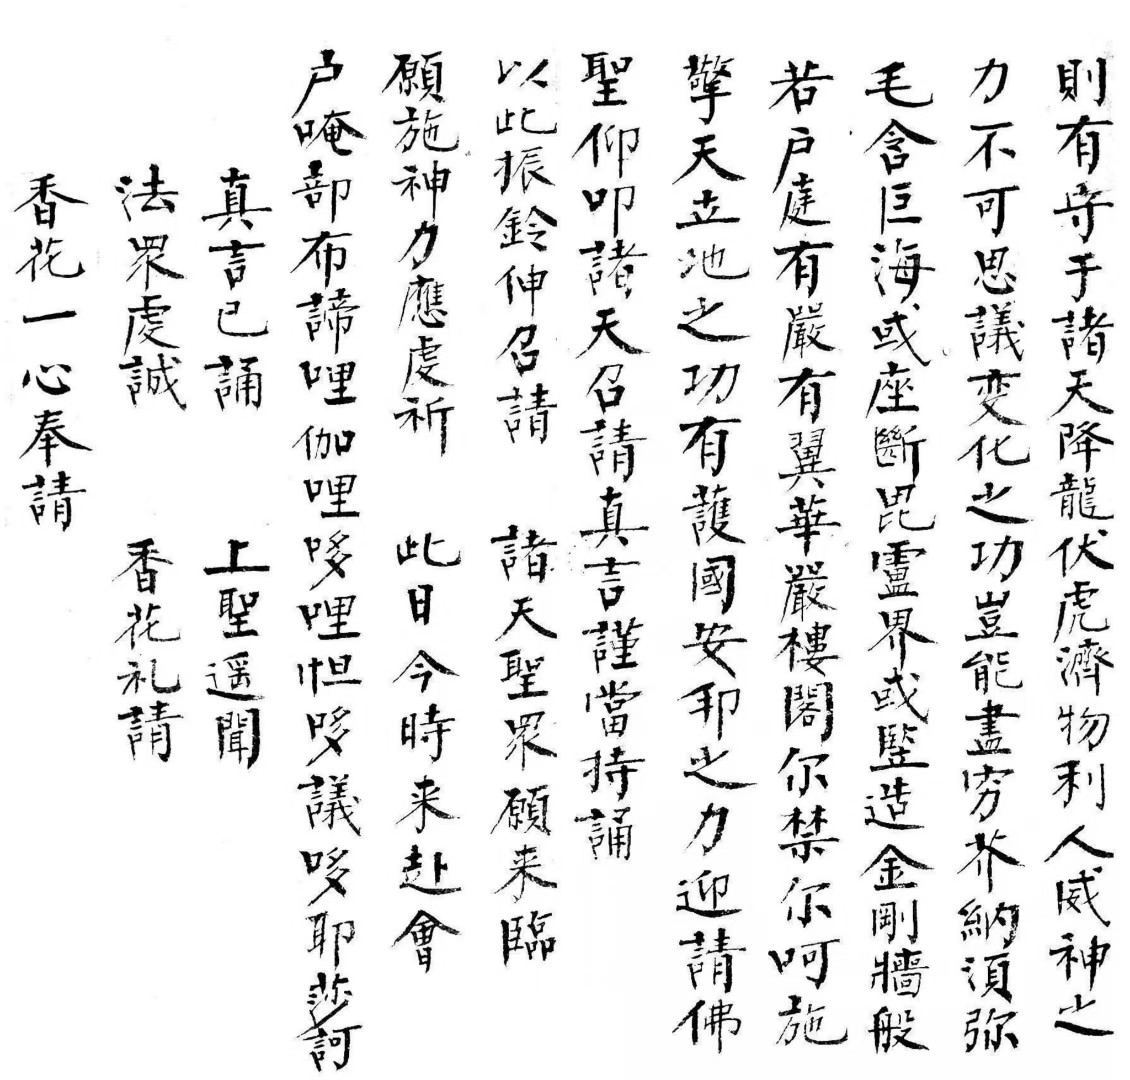 則有守于諸天降龍伏虎濟物利人威神之
力不可思議变化之功豈能盡穷芥納須弥
毛含巨海或座斷毘盧界或竪造金剛牆般
若户庭有嚴有翼華嚴樓閣尔禁尔呵施
擎天立地之功有護國安邦之力迎請佛
聖仰叩諸天召請真言謹當持誦
以此振鈴伸召請 諸天聖眾願来臨
願施神力應虔祈 此日今時来赴會
户唵部布諦哩伽哩哆哩怛哆議哆耶莎訶
真言已誦 上聖遥聞
法眾虔誠 香花礼請
香花一心奉請